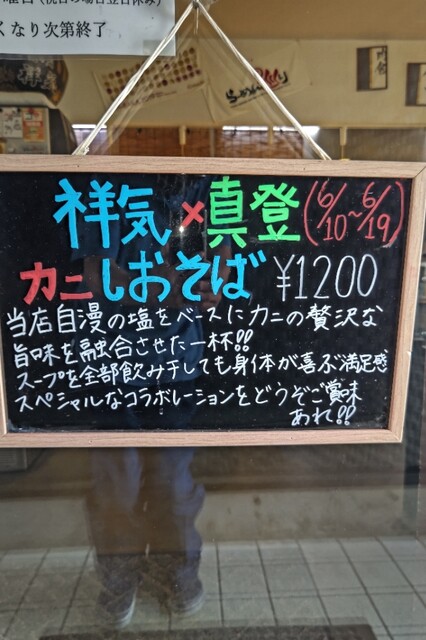 くなり次第終了
祥気×真登(6/10~6/19)
カニしおそば ¥1200
当店自慢の塩をベースにカニの贅沢な
旨味を融合させた一杯!!
スープを全部飲み干しても身体が喜ぶ満足感
スペシャルなコラボレーションをどうぞご賞味
あれ!!